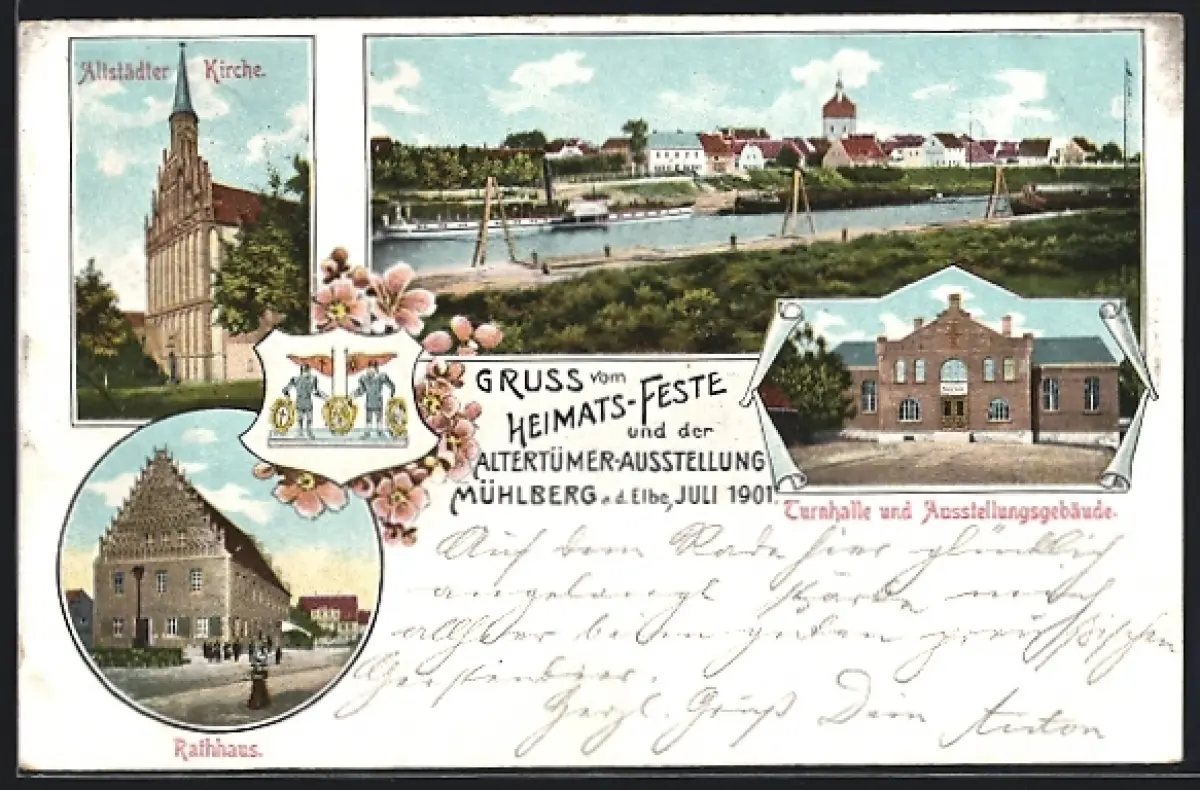 Altstädter Kirche.
GRUSS vom
HEIMATS-FESTE
und der
ALTERTÜMER-AUSSTELLUNG
MÜHLBERG a.d. Elbe, JULI 1901.
Turnhalle und Ausstellungsgebäude.
Rathhaus.
Auf dem Rade hier glücklich
angelangt stärke mich
allhier beim guten preussischen
Gerstenbier.
Herzl. Gruß Dein Anton